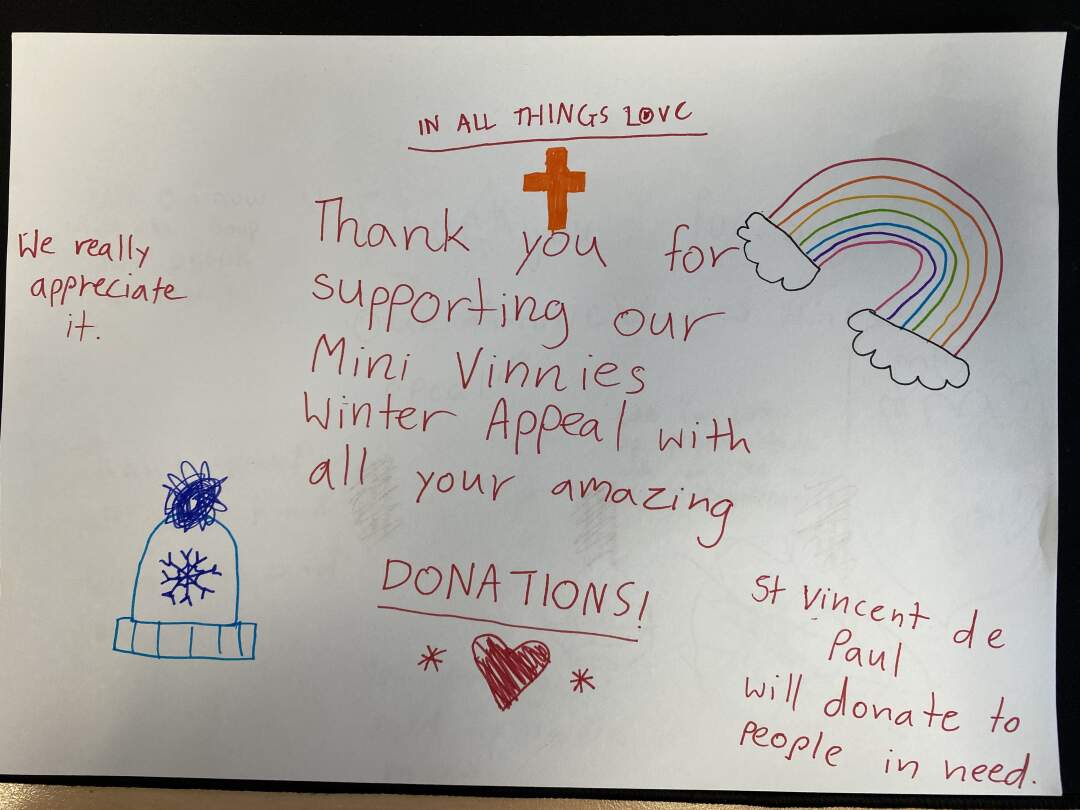 IN ALL THINGS LOVE
Thank you for
supporting our
Mini Vinnies
Winter Appeal with
all your amazing
DONATIONS!
We really
appreciate
it.
St Vincent de
Paul
will donate to
people in need.